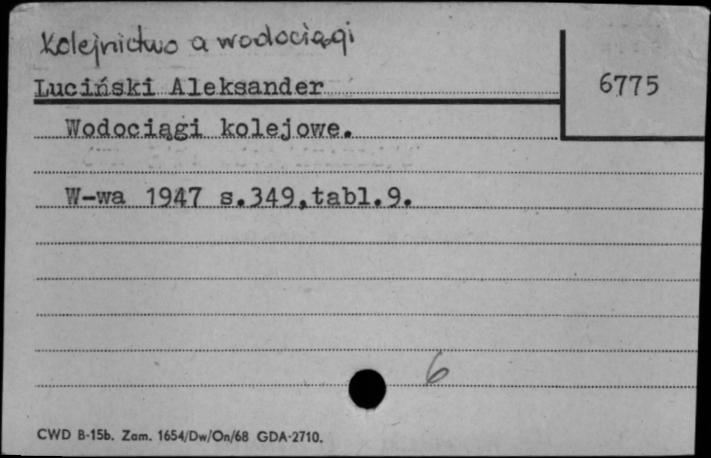 Kolejnictwo a wodociągi
Luciński Aleksander
6775
Wodociągi kolejowe.
W-wa 1947 s.349,tabl.9.
6
CWD B-15b. Zam. 1654/Dw/On/68 GDA-2710.